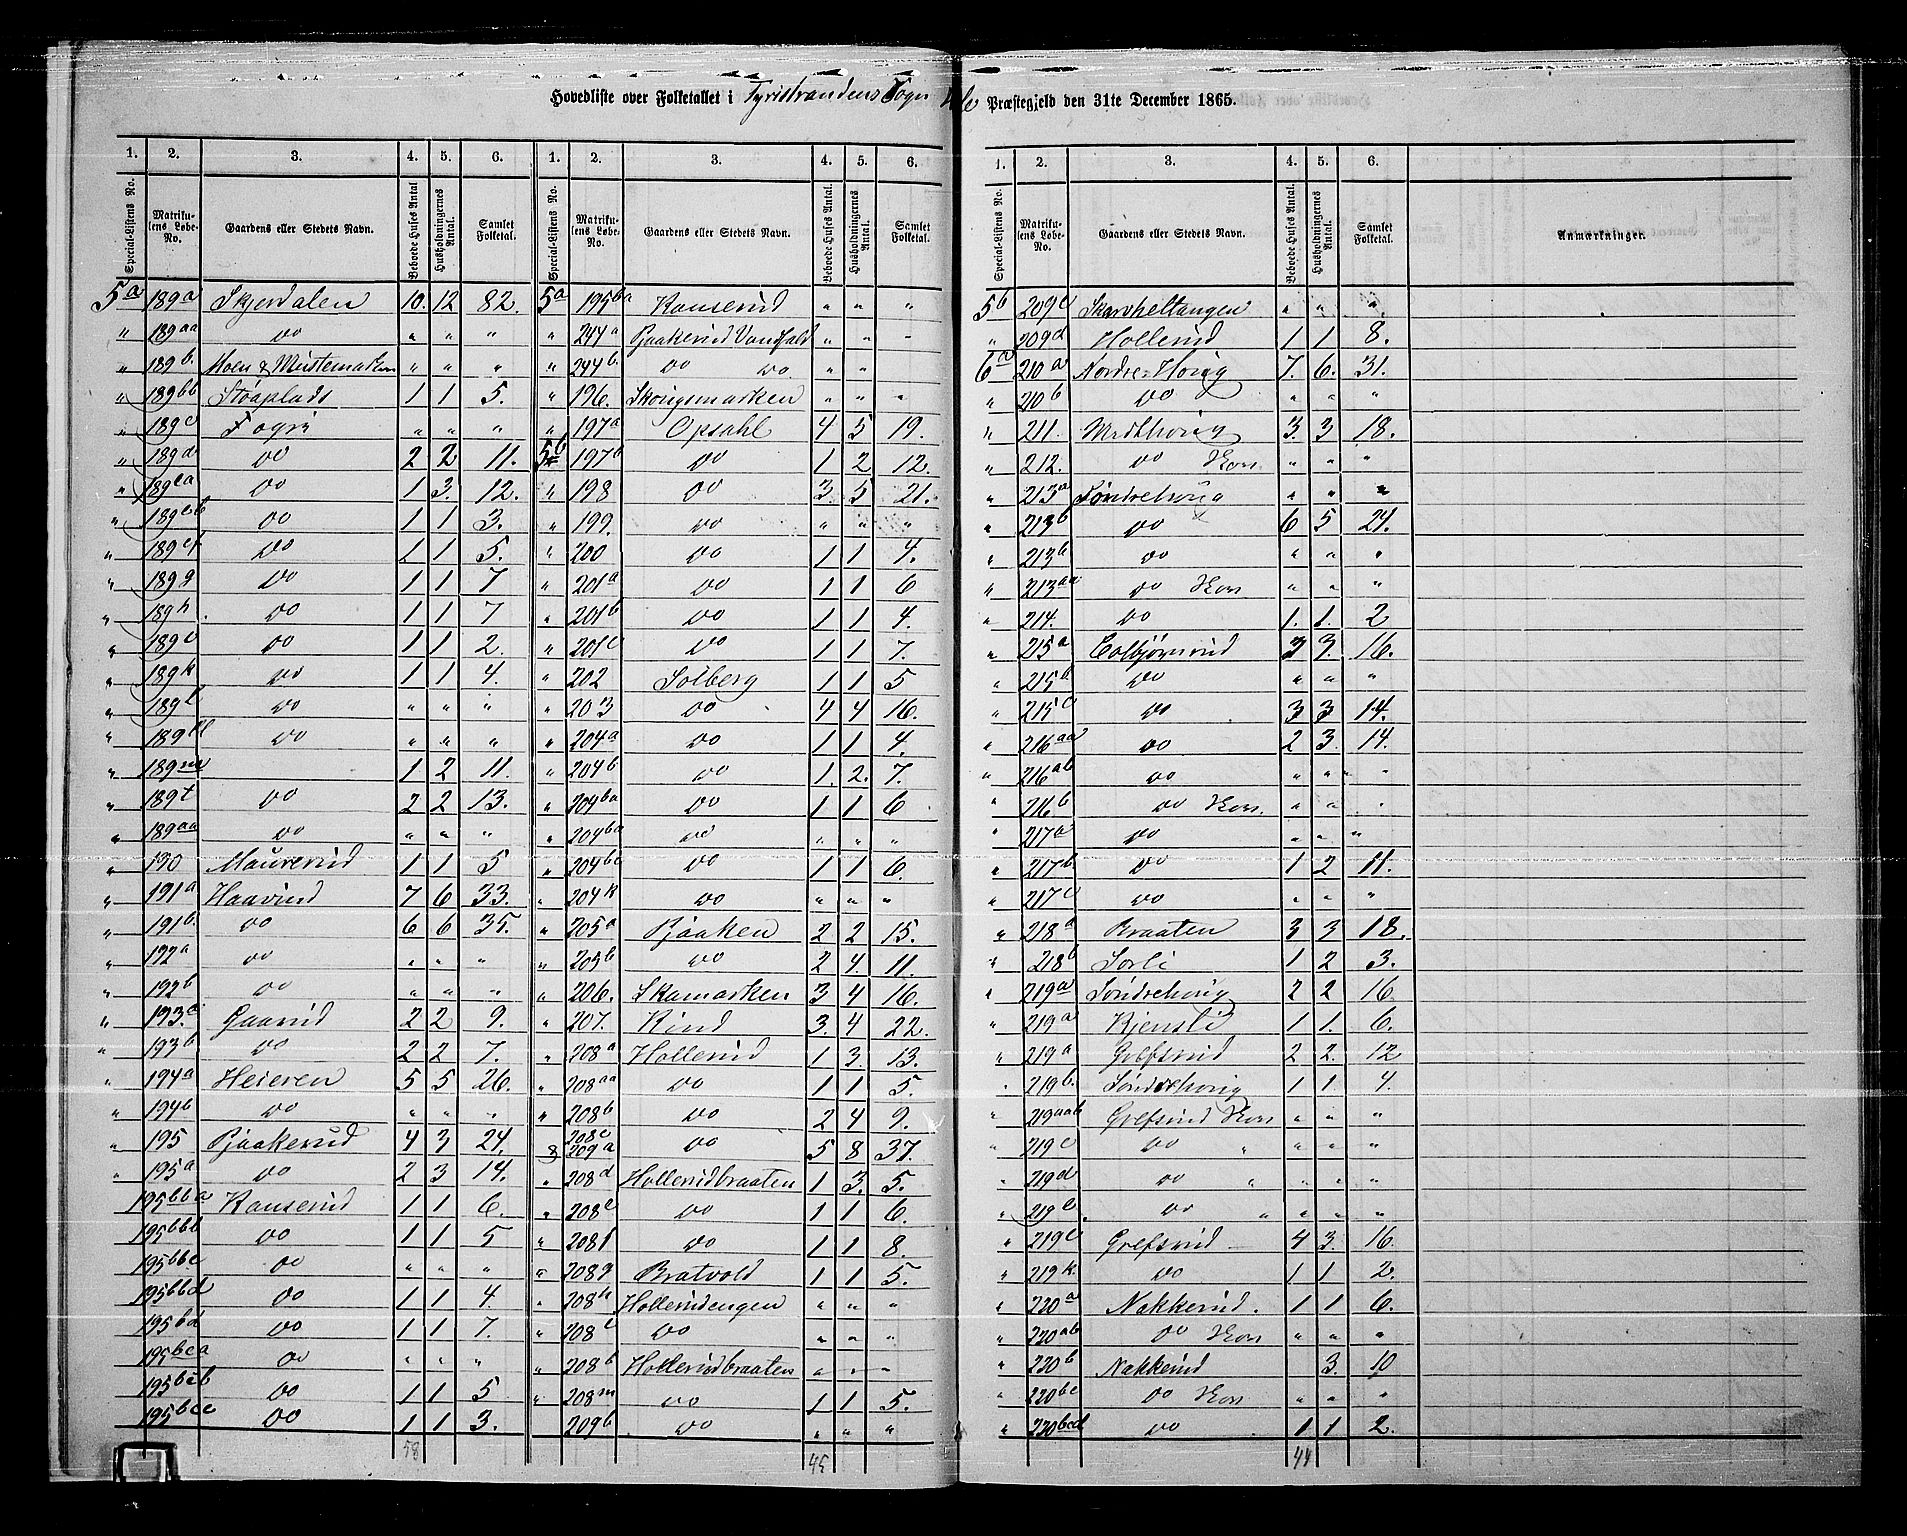 Hovedliste over Folketallet i Tyristrandens Sogn Præstegjeld den 31te December 1865.
1. 2. 3. 4. 5. 6. 1. 2. 3. 4. 5. 6. 1. 2. 3. 4. 5. 6.
Special-Listens No. Matrikulens Løbe-No. Gaardens eller Stedets Navn. Beboede Huses Antal Husholdningernes Antal. Samlet Folketal. Special-Listens No. Matrikulens Løbe-No. Gaardens eller Stedets Navn. Beboede Huses Antal. Husholdningernes Antal. Samlet Folketal. Special-Listens No. Matrikulens Løbe-No. Gaardens eller Stedets Navn. Beboede Huses Antal. Husholdningernes Antal. Samlet Folketal. Anmærkninger.
5a 189a Skjerdalen 10. 12 82.
" 189aa do " " "
" 189b. Moen & " " "
" 189bb Støaplads 1 1 5.
" 189c " " "
" 189d do 2 2 11.
" 189ea do 1 3. 12.
" 189eb do 1 1 3.
" 189ef do 1 1 5.
" 189g do 1 1 7
" 189h. do 1 1 7
" 189i do 1 1 2.
" 189k do 1 1 4.
" 189l do " " "
" 189ll do " " "
" 189m 1 2 11.
" 189t do 2 2 13.
" 189aa do " " "
" 190 Maurerud 1 1 5
" 191a Haarud 7 6 33.
" 191b. do 6 6 35.
" 192a do " " "
" 192b do " " "
" 193.a Gaarud 2 2 9.
" 193b do 2 2 7.
" 194a Heieren 5 5 26.
" 194b do " " "
" 195 Bjaakerud 4 3 24.
" 195a do 2 3 14.
195bba Ranserud 1 1 6.
195bbb do 1 1 5
195bbc do " " "
195bbd do 1 1 4.
195bd do 1 1 7.
195bca do " " "
195bcb do 1 1 5
195bcc do 1 1 3.
58
5a 195ba Ranserud " " "
" 244a Bjaakerud Vandfald " " "
" 244b. do do. " "
" 196. Skougsmarken " " "
" 197a Opsahl 4 5 19.
5b 197b do 1 2 12.
" 198 do 3. 5 21.
" 199. do " " "
" 200 do 1 1 4.
" 201a do 1 1 6
" 201b do 1 1 4.
" 201c do 1 1 7.
" 202 Solberg 1 1 5
" 203 do 4 4 16.
" 204a do 1 1 4.
" 204b do 1. 2. 7.
" 204ba do 1 1 6
" 204ba do " " "
" 204bc do 1 1 6.
" 204k do " " "
" 205a Bjaaken 2 2 15.
" 205b do 2 4. 11.
" 206. Skamarken 3 4 16.
" 207. Rind 3. 4 22.
" 208a Hollerud 1 3. 13.
" 208aa do 1 1 5.
" 208b do 2 4 9.
208c & 209a do 5 8 37.
" 208d Hollerudbraaten 1 3. 5.
" 208e do 1 1 6.
" 208f do 1 1 8.
" 208g Bratvold 1 1 5.
" 208h Hollerudengen " " "
" 208i do " " "
" 208b Hollerudbraaten " " "
" 208m do 1 1 5.
" 209b do " " "
45
5b 209c Skarvheltangen " " "
" 209d Hollerud 1 1 8.
6a 210a Nordre=Hørig 7. 6. 31.
" 210b do " " "
" 211. Midthørig 3. 3 18.
" 212. do " " "
" 213a Søndrehørig " " "
" 213b do 6 5 24.
" 213b do " " "
" 213aa do " " "
" 214. do 1. 1. 2
" 215a Colbjørnrud 3 3. 16.
" 215b do " " "
" 215c do 3 3 14.
" 216aa do 2 3. 14.
" 216ab do " " "
" 216b do " " "
" 217a do " "
" 217b do 1 2 11.
" 217c do " " "
" 218a Braaten 3 3 18.
" 218b Sorli 1 2 3.
" 219a Søndrehørig 2 2 16.
" 219a Kjensli 1 1. 6.
" 219a Grefsrud 2 2. 12
" 219b. Søndrehørig 1 1. 4.
" 219aab Grefsrud " " "
" 219c do " " " "
" 219d do " " " "
" 219e do " " " "
" 219e Grefsrud 4 3. 16.
" 219k. do 1 1 2.
" 220a Nakkerud. 1 1 6.
" 220ab do " " "
" 220b Nakkerud 3. 10
" 220bc do " " "
" 220bcd do 1 1 2.
44